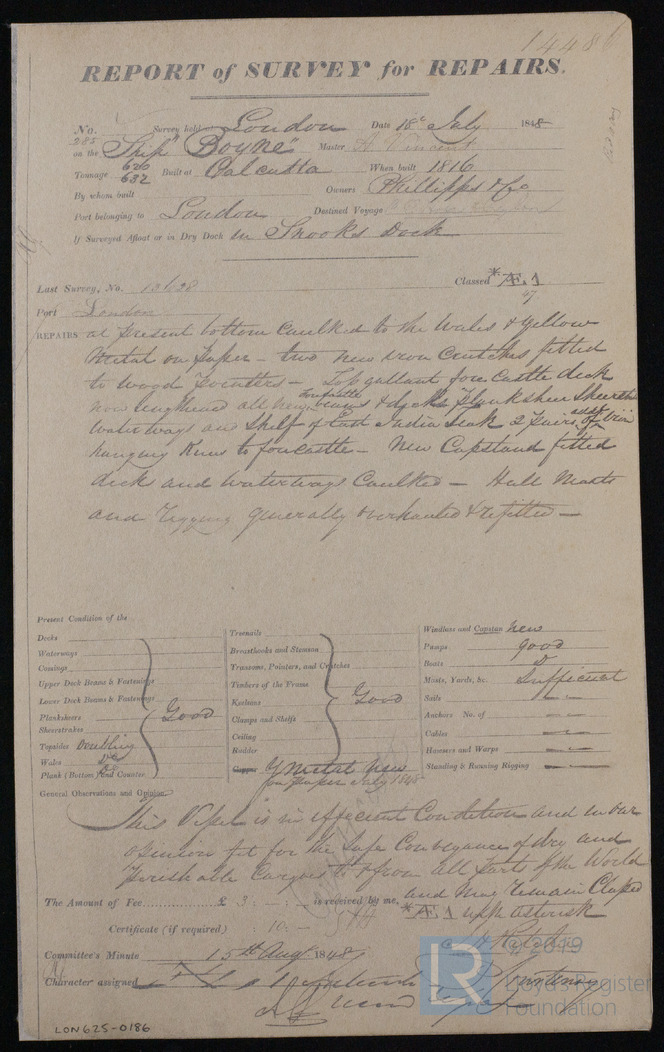 1448
REPORT of SURVEY for REPAIRS.
No. 285 Survey held at London Date 18th July 1848
on the Ship "Boyne" Master Vincent
Tonnage 620 632 Built at Calcutta When built 1816
By whom built Owners Phillipps & Co
Port belonging to London Destined Voyage
If Surveyed Afloat or in Dry Dock in Snooks Dock
Last Survey, No. Classed *Æ.1
47
Port London
REPAIRS at present bottom Caulked to the Wales & Yellow
Metal on paper - two new iron Crutches fitted
to wood pointers - Top gallant fore Castle deck
now lengthened all new forecastle beams & deck Planksheer Sheerstrake
Waterways and Shelf of East India Teak 2 pairs addl of iron
hanging Knees to forecastle - New Capstand fitted
decks and Waterways Caulked - Hull Masts
and Rigging generally overhauled & refitted -
Present Condition of the
Decks
Waterways
Comings
Upper Deck Beams & Fastenings
Lower Deck Beams & Fastenings
Planksheers
Sheerstrakes
Good
Topsides Doubling
Wales Do
Plank (Bottom) and Counter Do
Treenails
Breasthooks and Stemson
Transoms, Pointers, and Crutches
Timbers of the Frame
Keelsons
Clamps and Shelfs
Ceiling
Rudder
Good
Copper Y Metal New
on paper July 1848
Windlass and Capstan New
Pumps good
Boats Do
Masts, Yards, &c. Sufficient
Sails
Anchors No. of
Cables
Hawsers and Warps
Standing & Running Rigging
General Observations and Opinion.
This Vessel is in efficient Condition and in our
opinion fit for the Safe Conveyance of dry and
Perishable Cargoes to & from all parts of the World
and may remain Classed
*Æ.1 with asterisk
The Amount of Fee £ 3 : : - is received by me,
Certificate (if required) : 10 : -
Committee's Minute 15th Augt 1848
Character assigned
LON625-0186
© 2019
LR
Lloyd's Register
Foundation